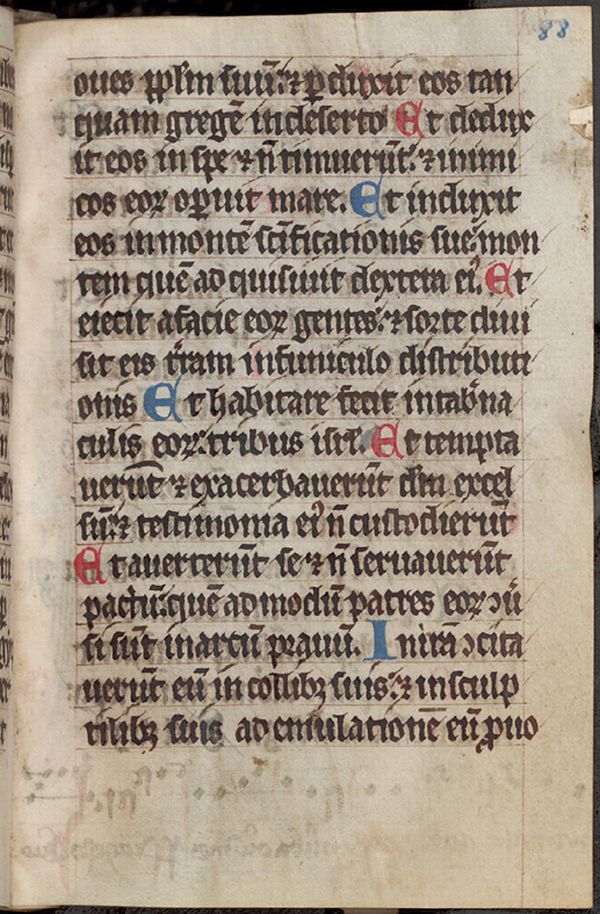 88
oues pplm̄ suū: ⁊ ꝑduxit eos tan
quam gregē in deserto Et dedux
it eos in spe ⁊ n̄ timuerūt: ⁊ inimi
cos eoꝝ oꝑuit mare. Et induxit
eos in montē sc̄ificationis sue: mon
tem quē ad quisiuit dextera ei᷒. Et
eiecit a facie eoꝝ gentes: ⁊ sorte diui
sit eis t̄ram in funiculo distributi
onis Et habitare fecit in tab̄na
culis eoꝝ: tribus isrl̄. Et tempta
uerūt ⁊ exacerbauerūt dm̄ excel
sū: ⁊ testimonia ei᷒ n̄ custodierūt
Et auerterūt se ⁊ n̄ seruauerūt
pactū: quē ad modū patres eoꝝ ↄū̉
si sūt in arcū prauū. In irā ↄcita
uerūt eū in collibꝫ suis: ⁊ in sculp
tilibꝫ suis ad emulationē eū ꝓuo